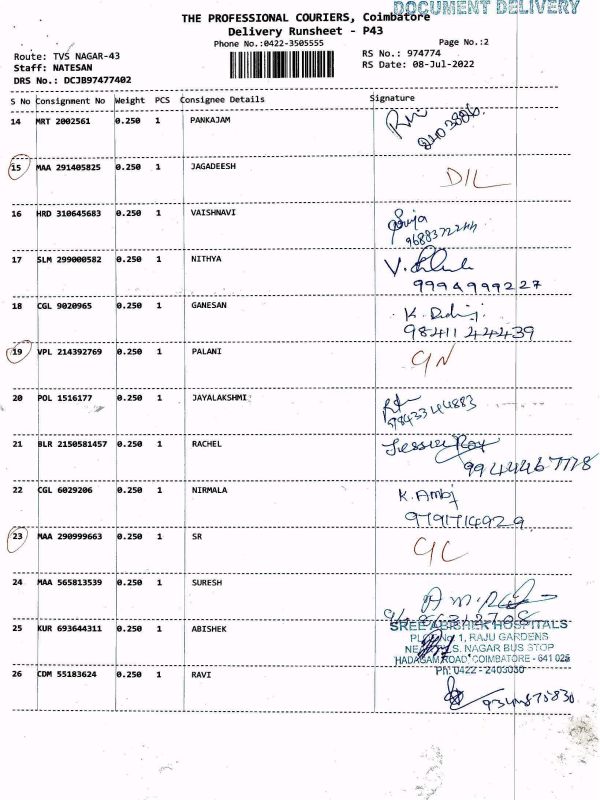 DOCUMENT DELIVERY
THE PROFESSIONAL COURIERS, Coimbatore
Delivery Runsheet - P43
Phone No.:0422-3505555
Page No.:2
Route: TVS NAGAR-43
RS No.: 974774
Staff: NATESAN
RS Date: 08-Jul-2022
DRS No.: DCJB97477402
S No Consignment No Weight PCS Consignee Details Signature
14 MRT 2002561 0.250 1 PANKAJAM
15 MAA 291405825 0.250 1 JAGADEESH
DIL
16 HRD 310645683 0.250 1 VAISHNAVI
17 SLM 299000582 0.250 1 NITHYA
9994999227
18 CGL 9020965 0.250 1 GANESAN
9841144439
19 VPL 214392769 0.250 1 PALANI
20 POL 1516177 0.250 1 JAYALAKSHMI
9843344883
21 BLR 2150581457 0.250 1 RACHEL
Jessie Roy
22 CGL 6029206 0.250 1 NIRMALA
9791714929
23 MAA 290999663 0.250 1 SR
24 MAA 565813539 0.250 1 SURESH
25 KUR 693644311 0.250 1 ABISHEK
SREE ABISHEK HOSPITALS
1, RAJU GARDENS
NAGAR BUS STOP
ROAD, COIMBATORE - 641 025
Ph: 0422 - 2403030
26 CDM 55183624 0.250 1 RAVI